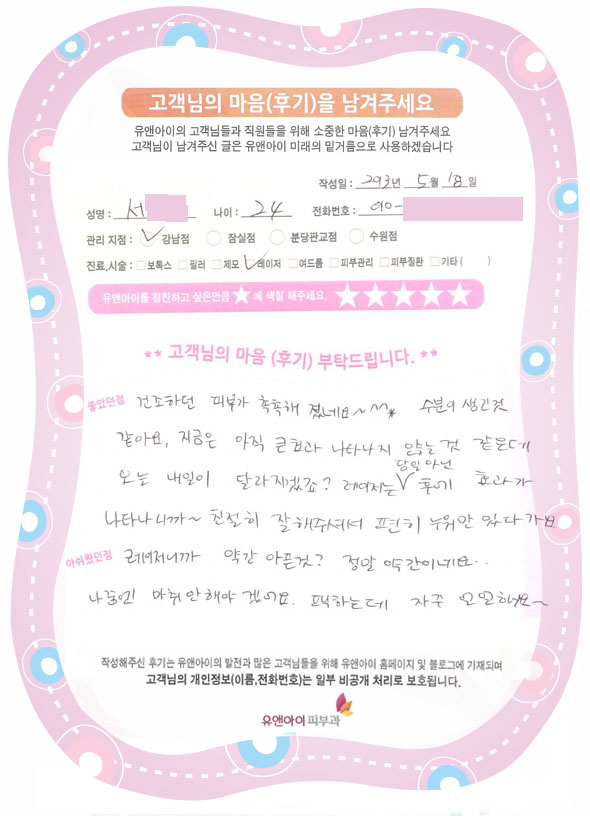 고객님의 마음(후기)을 남겨주세요
유앤아이의 고객님들과 직원들을 위해 소중한 마음(후기) 남겨주세요
고객님이 남겨주신 글은 유앤아이 미래의 밑거름으로 사용하겠습니다
작성일 : 2013년 5월 18일
성명 : 서 나이 : 24 전화번호 : 010-
관리 지점 : 강남점 잠실점 분당판교점 수원점
진료,시술 : 보톡스 필러 제모 레이저 여드름 피부관리 피부질환 기타 ( )
유앤아이를 칭찬하고 싶은만큼 ★ 에 색칠 해주세요. ★★★★★
** 고객님의 마음 (후기) 부탁드립니다. **
좋았던점 건조하던 피부가 촉촉해 졌네요~^^* 수분이 생긴것
같아요, 지금은 아직 큰효과 나타나지 않는것 같은데
오는 내일이 달라지겠죠? 레이저는 당일 아닌 후에 효과가
나타나니까~ 친절히 잘해주셔서 편히 누워만 있다가요
아쉬웠던점 레이저니까 약간 아픈것? 정말 약간이네요..
마취안해야 겠어요. 팩하는데
작성해주신 후기는 유앤아이의 발전과 많은 고객님들을 위해 유앤아이 홈페이지 및 블로그에 기재되며
고객님의 개인정보(이름,전화번호)는 일부 비공개 처리로 보호됩니다.
유앤아이피부과